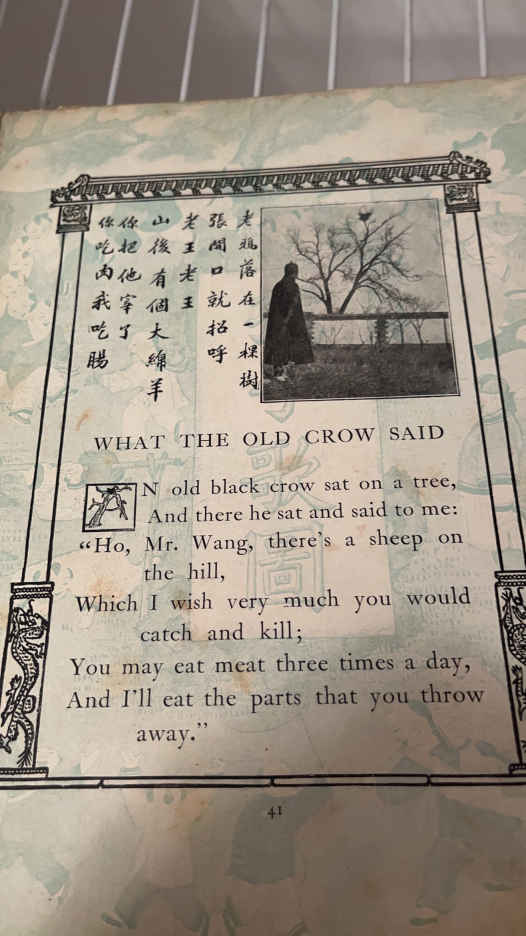 老鴉落在一棵樹
張開口就招呼
老王老王
山後有個大綿羊
你把他宰了
你吃肉我吃腸
WHAT THE OLD CROW SAID
AN old black crow sat on a tree,
And there he sat and said to me:
“Ho, Mr. Wang, there’s a sheep on
the hill,
Which I wish very much you would
catch and kill;
You may eat meat three times a day,
And I’ll eat the parts that you throw
away.”
41
子
歌
圖